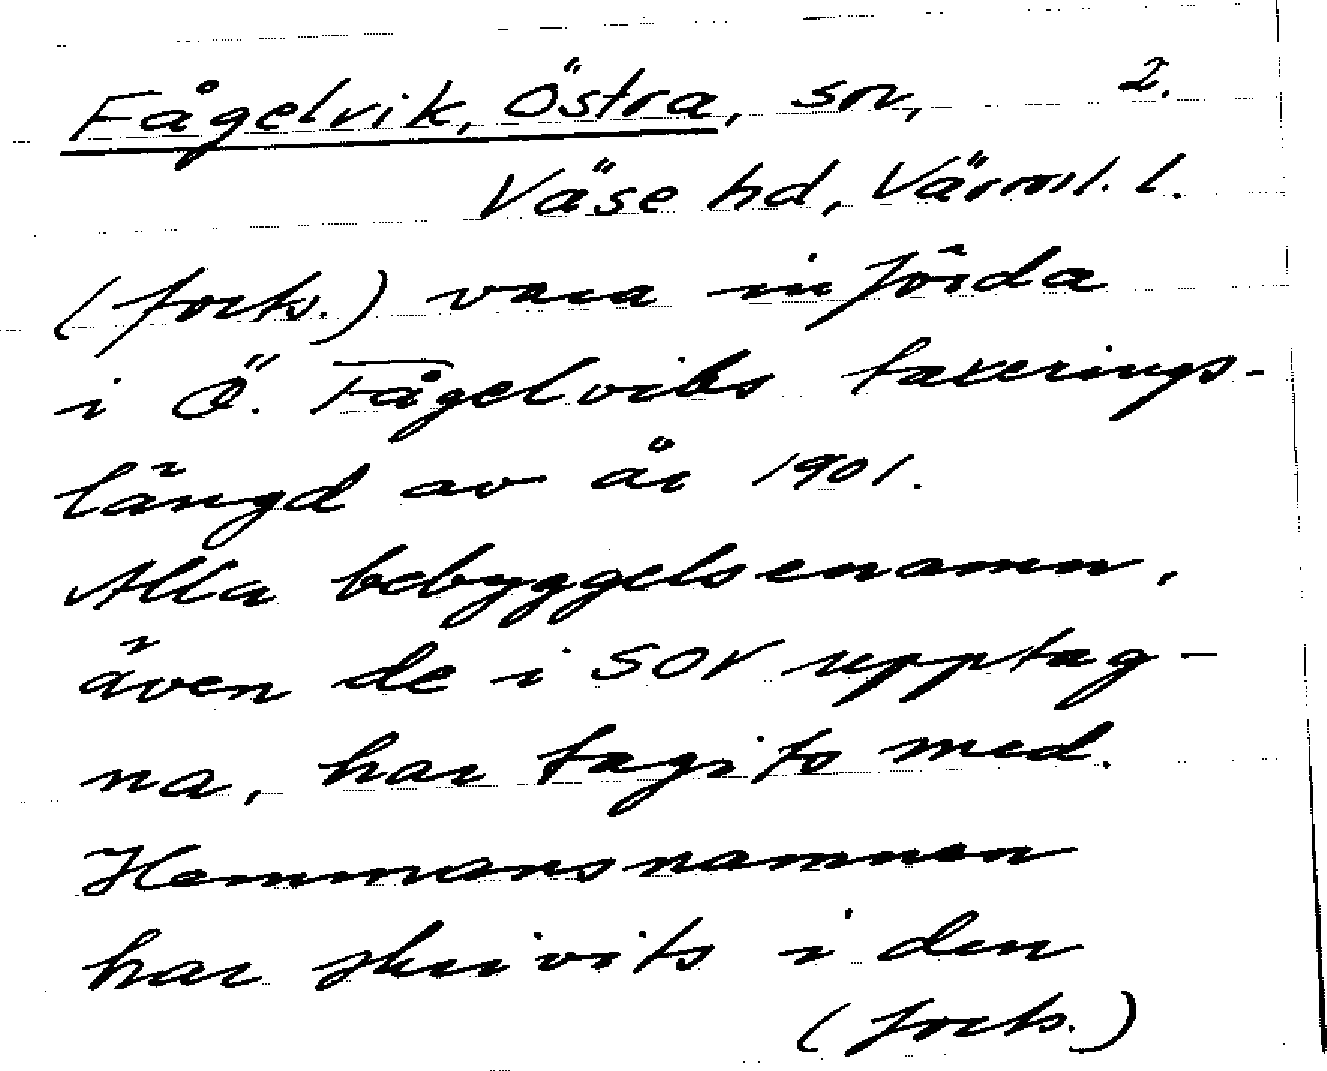 Fågelvik, Östra, sn, 2.
Väse hd, Värml. l.
(forts.) vara införda
i Ö. Fågelviks taxerings-
längd av år 1901.
Alla bebyggelsenamn,
även de i SOV upptag-
na, har tagits med.
Hemmansnamnen
har skrivits i den
(forts.)